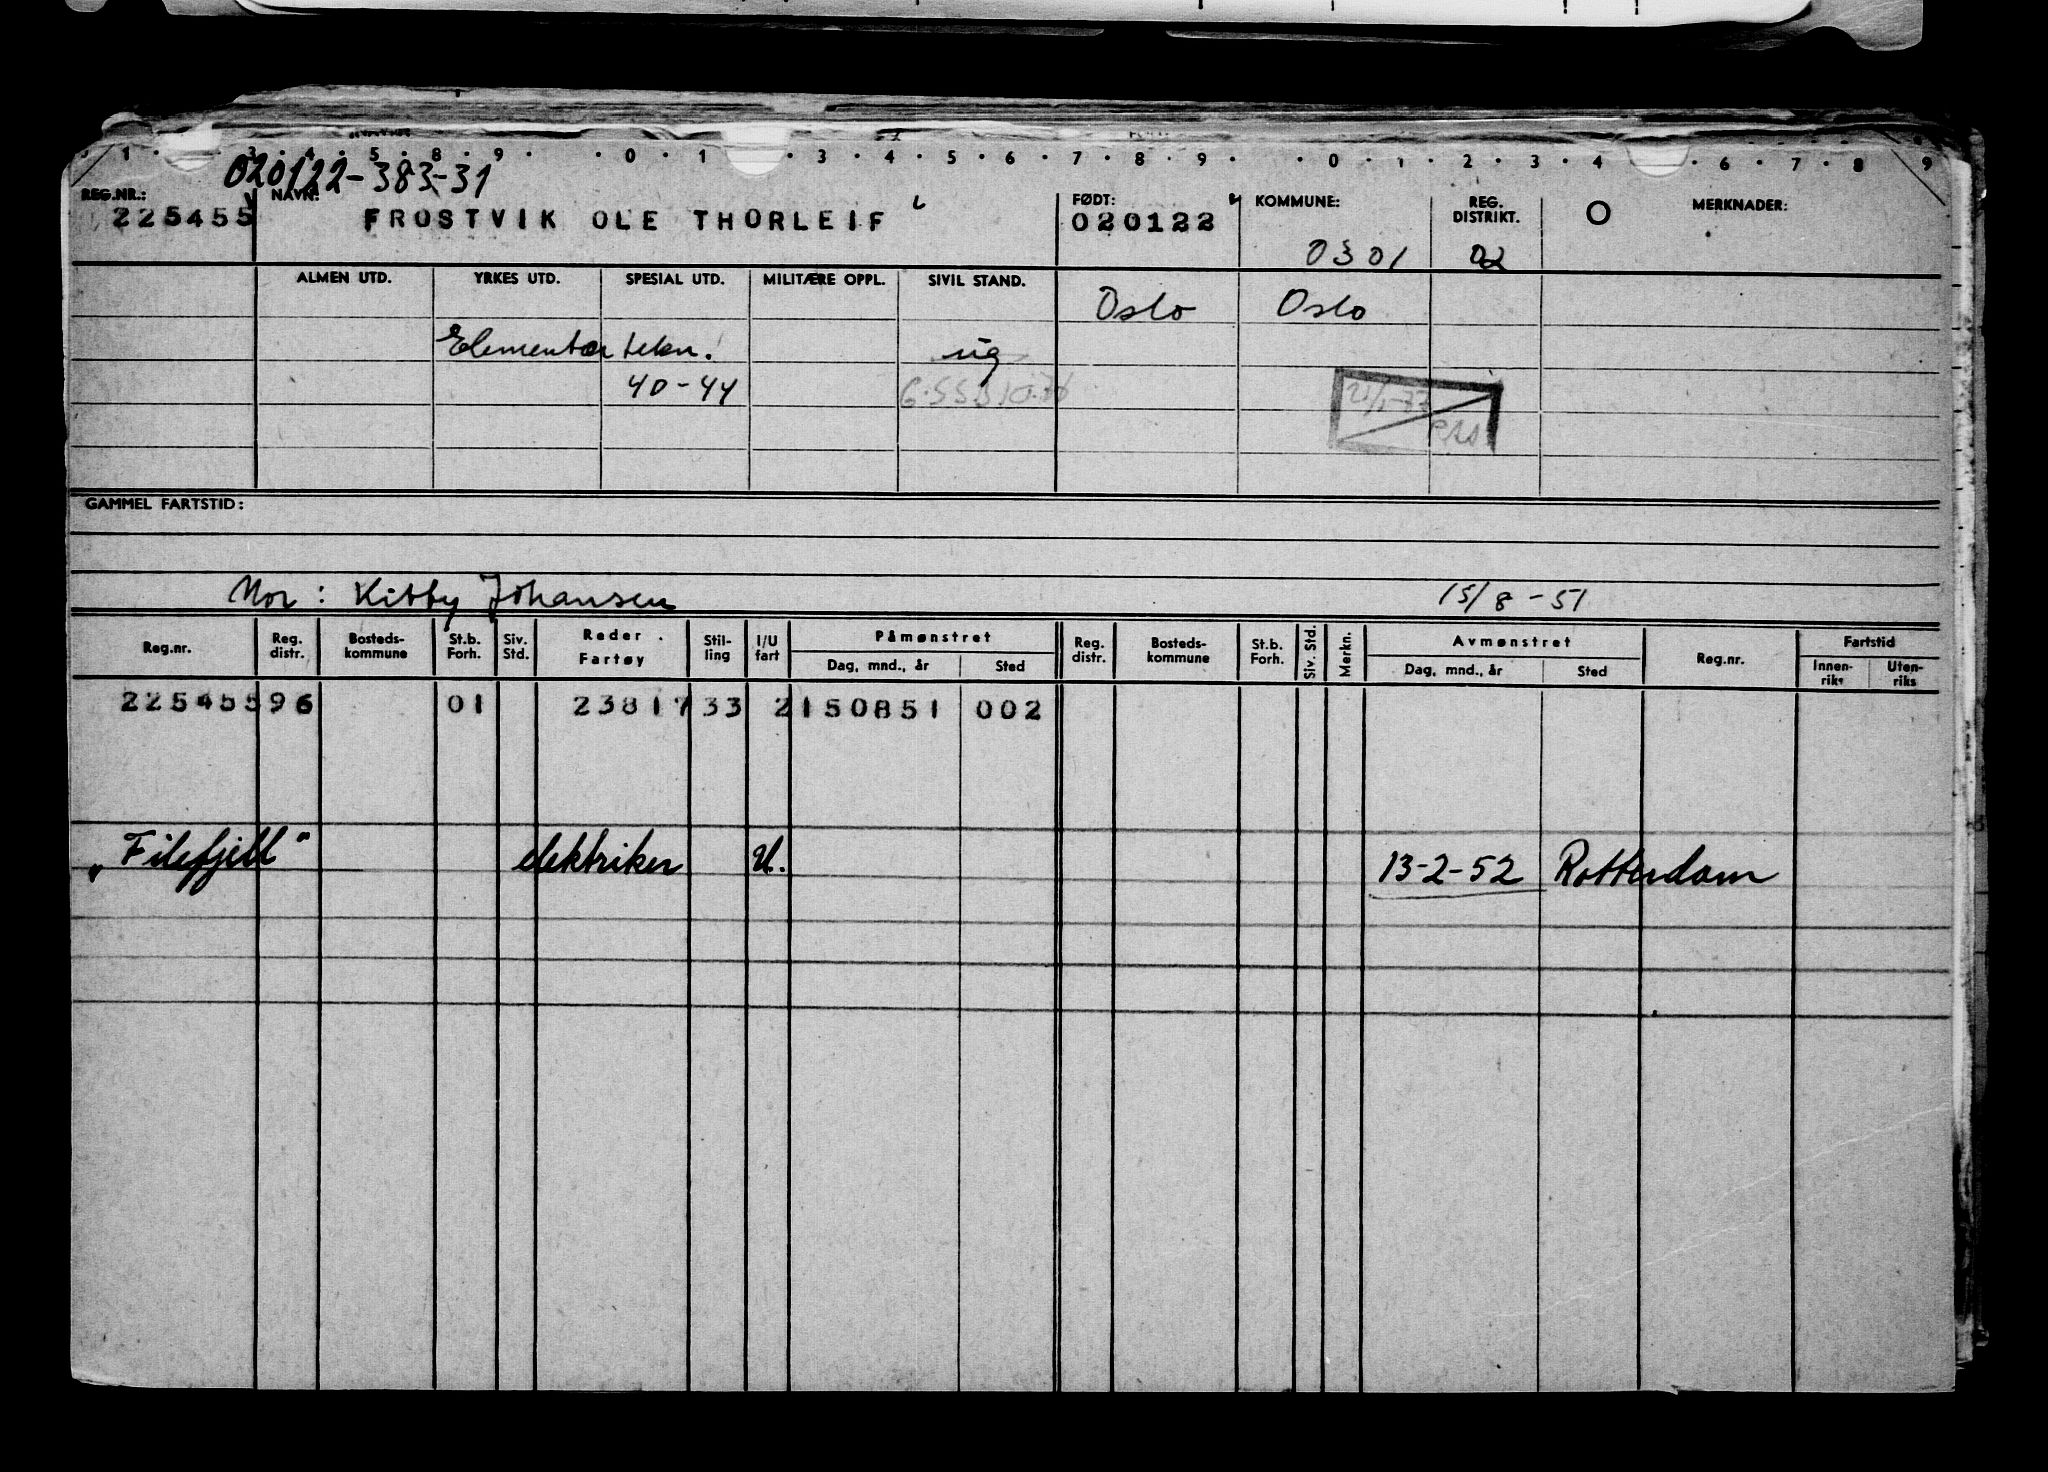 1 3 5 8 9 0 1 3 4 5 6 7 8 9 0 1 2 3 4 6 7 8 9
020122-383-31
REG.NR.: NAVN: FØDT: KOMMUNE: REG. DISTRIKT. O MERKNADER:
225455 FROSTVIK OLE THORLEIF 020122 0301 02
ALMEN UTD. YRKES UTD. SPESIAL UTD. MILITÆRE OPPL. SIVIL STAND. Oslo Oslo
Elementær tekn. ug
40-44
GAMMEL FARTSTID:
Mor: Kitty Johansen 15/8-51
Reg.nr. Reg. distr. Bosteds-kommune St.b. Forh. Siv. Std. Reder Fartøy Stil-ling I/U fart Påmønstret Reg. distr. Bosteds-kommune St.b. Forh. Siv. Std. Merkn. Avmønstret Reg.nr. Fartstid
Dag, mnd., år Sted Dag, mnd., år Sted Innen-riks Uten-riks
225455 96 01 23817 33 2 150851 002
„Filefjell" elektriker U. 13-2-52 Rotterdam